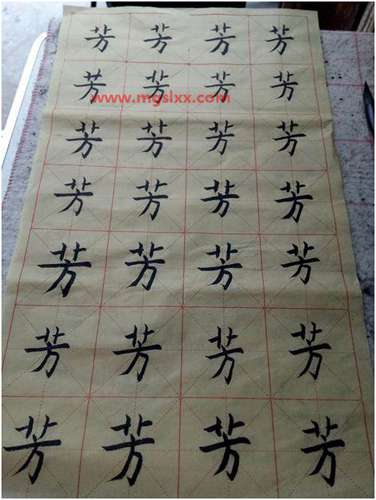 芳 芳 芳 芳
芳 芳 芳 芳
www.mgslxx.com
芳 芳 芳 芳
芳 芳 芳 芳
芳 芳 芳 芳
芳 芳 芳 芳
芳 芳 芳 芳